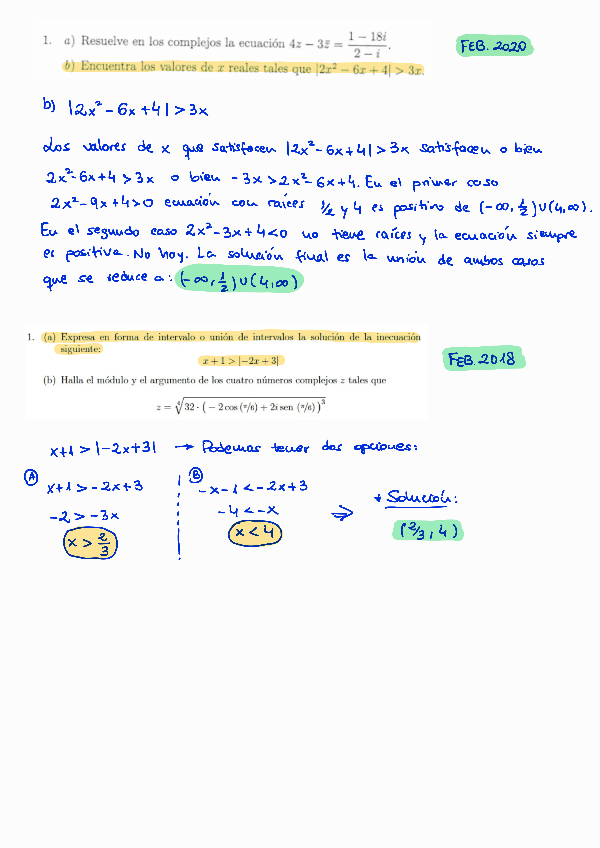 1. a) Resuelve en los complejos la ecuación 4z − 3z̄ = (1 − 18i)/(2 − i).
FEB. 2020
b) Encuentra los valores de x reales tales que |2x² − 6x + 4| > 3x.
b) |2x² - 6x + 4| > 3x
Los valores de x que satisfacen |2x² - 6x + 4| > 3x satisfacen o bien
2x² - 6x + 4 > 3x o bien - 3x > 2x² - 6x + 4. En el primer caso
2x² - 9x + 4 > 0 ecuación con raíces 1/2 y 4 es positivo de (-∞, 1/2) ∪ (4, ∞).
En el segundo caso 2x² - 3x + 4 < 0 no tiene raíces y la ecuación siempre
es positiva. No hay. La solución final es la unión de ambos casos
que se reduce a: (-∞, 1/2) ∪ (4, ∞)
1. (a) Expresa en forma de intervalo o unión de intervalos la solución de la inecuación
siguiente:
FEB. 2018
x + 1 > |−2x + 3|
(b) Halla el módulo y el argumento de los cuatro números complejos z tales que
z = ⁴√(32 · (−2 cos (π/6) + 2i sen (π/6))³)
x+1 > |-2x+3| → Podemos tener dos opciones:
A
x+1 > -2x+3
-2 > -3x
x > 2/3
B
-x-1 < -2x+3
-4 < -x
x < 4
⇒
* Solución:
(2/3, 4)